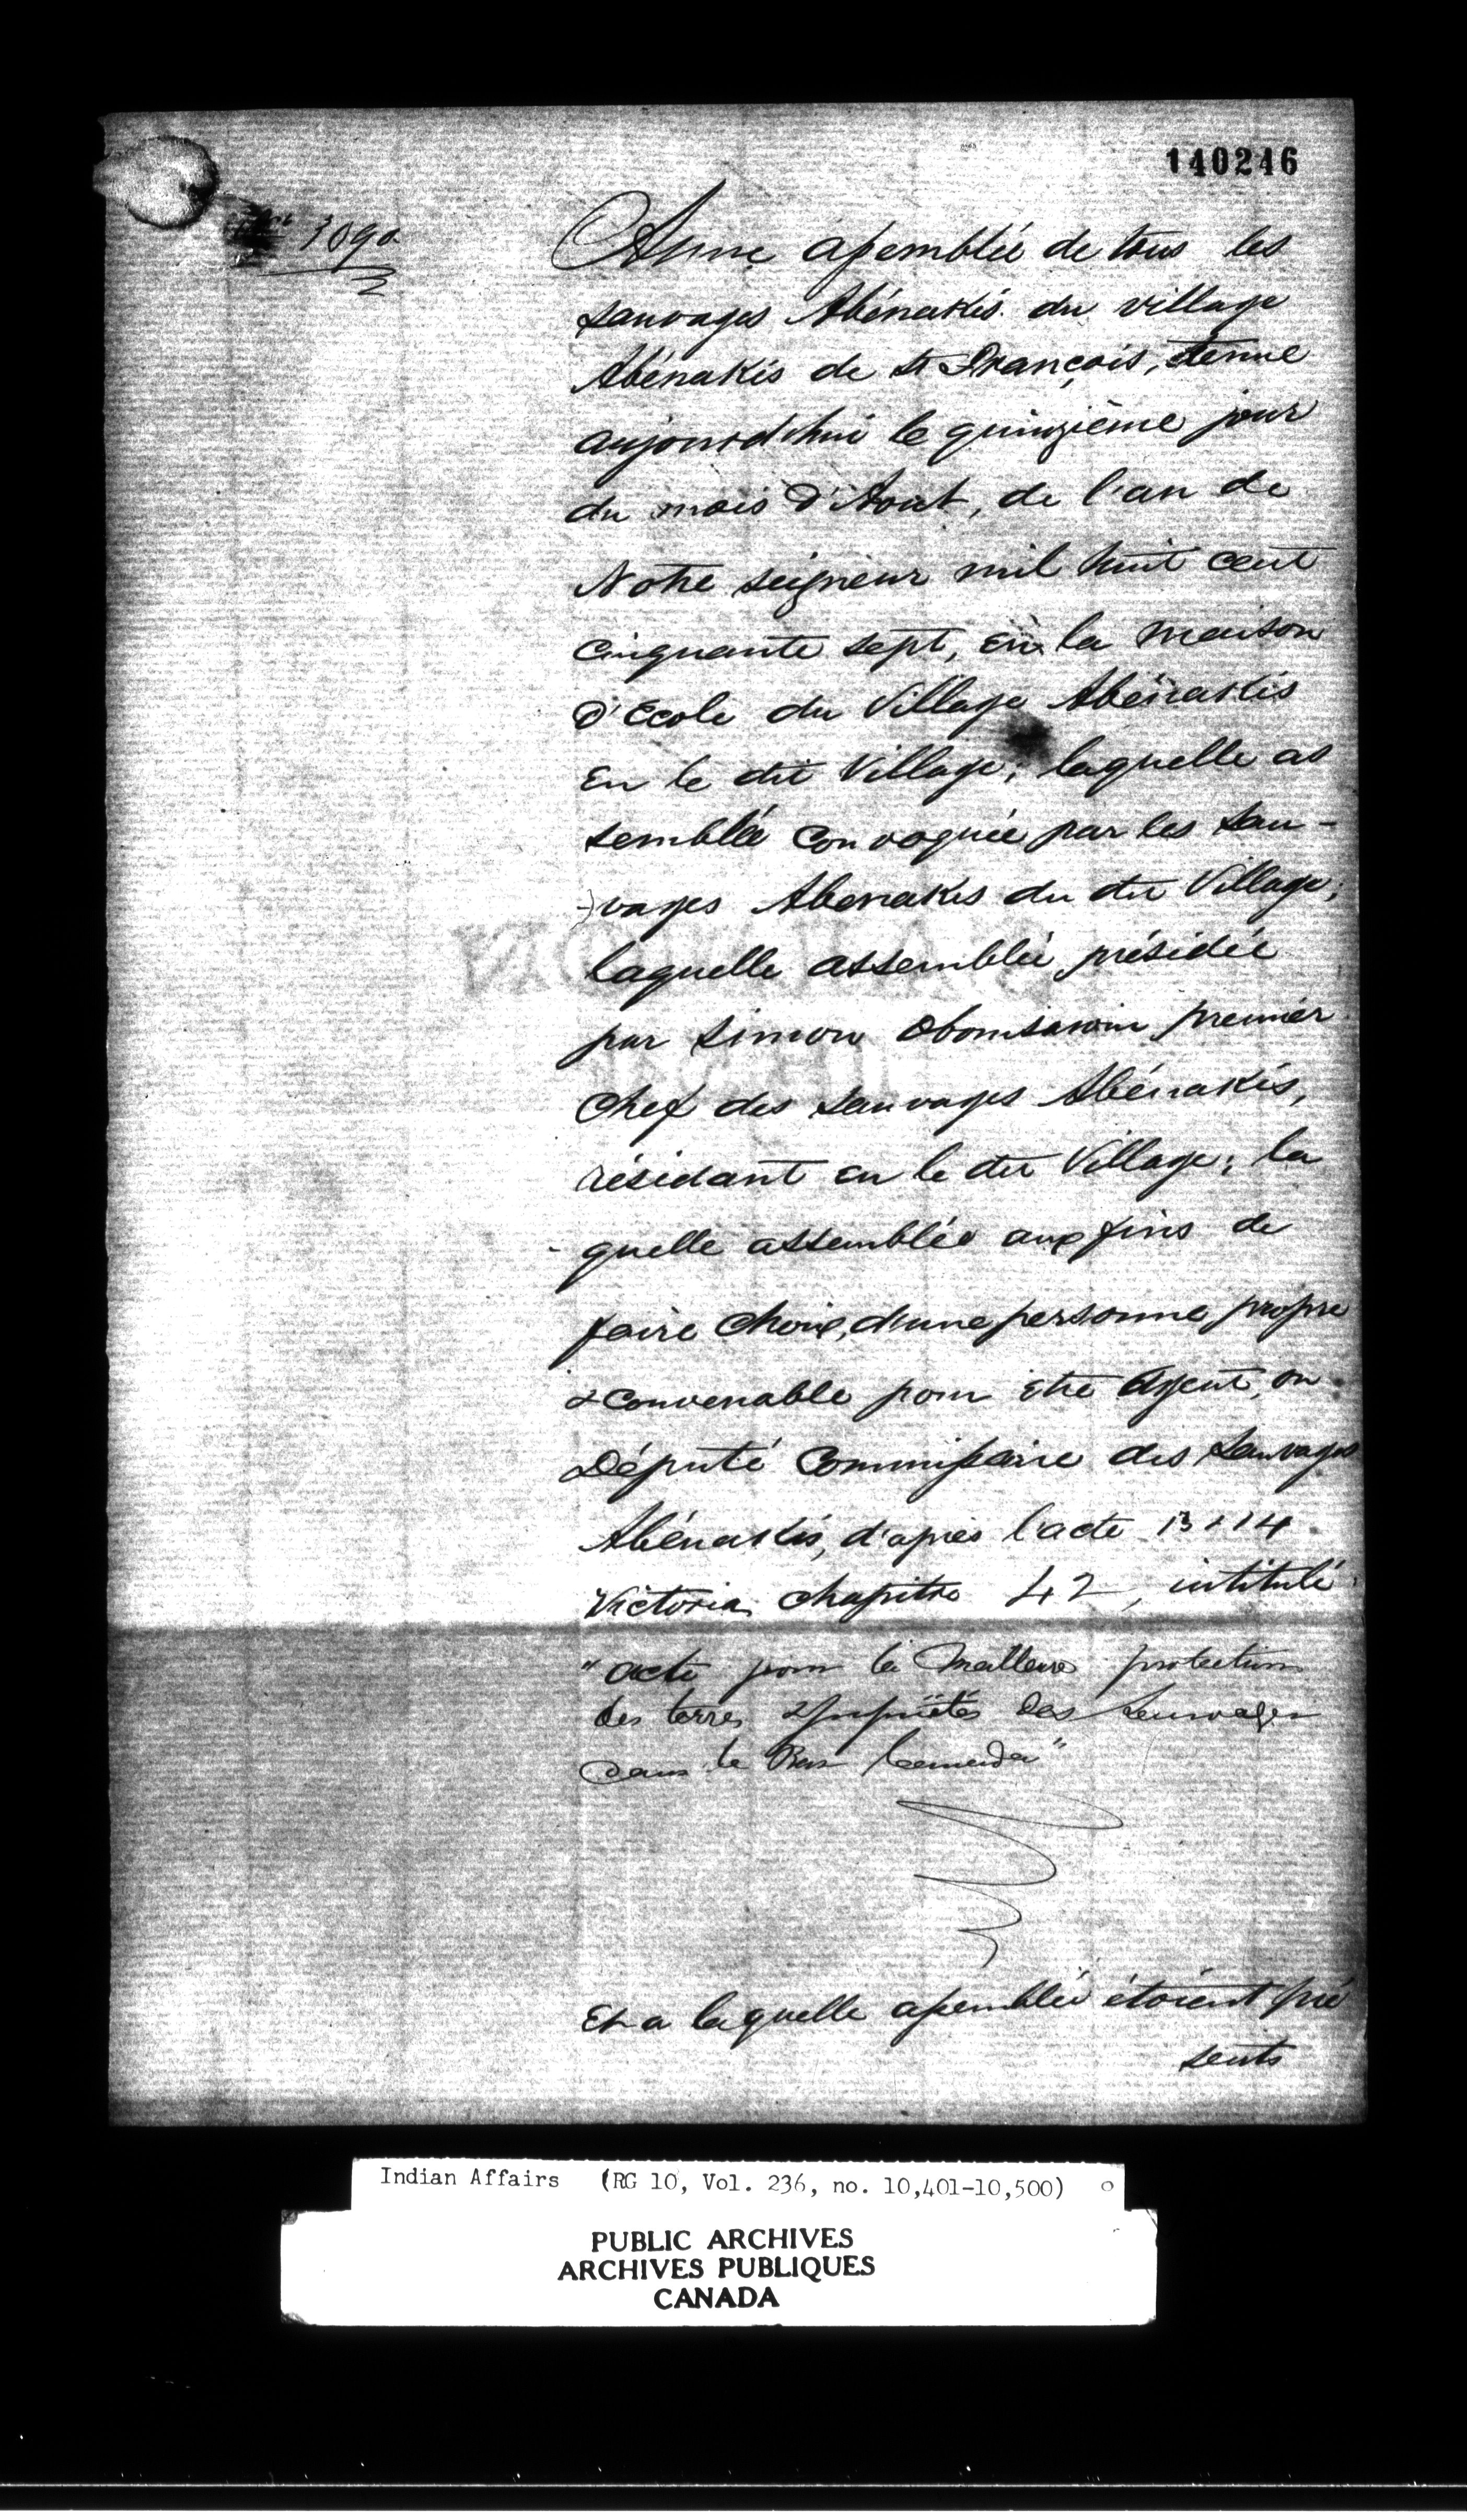 140246
3090
A une assemblée de tous les
sauvages Abénakis du village
Abénakis de St François, tenue
aujourd'hui le quinzième jour
du mois d'Aout, de l'an de
Notre seigneur mil huit cent
cinquante sept, en la maison
d'Ecole du Village Abénakis
en le dit Village; laquelle as
semblée convoquée par les sau-
-vages Abenakis du dit Village;
laquelle assemblée présidée
par Simon Obomsawin premier
Chef des sauvages Abénakis,
résidant en le dit Village; la
quelle assemblée aux fins de
faire choix, d'une personne propre
& convenable pour etre Agent, ou
Député Commissaire des Sauvages
Abénakis, d'après l'acte 13 & 14
Victoria chapitre 42, intitulé
"acte pour la meilleure protection
des terres & propriétés des Sauvages
dans le Bas Canada"
Et a laquelle assemblée étoient pré
sents
Indian Affairs (RG 10, Vol. 236, no. 10,401-10,500)
PUBLIC ARCHIVES
ARCHIVES PUBLIQUES
CANADA